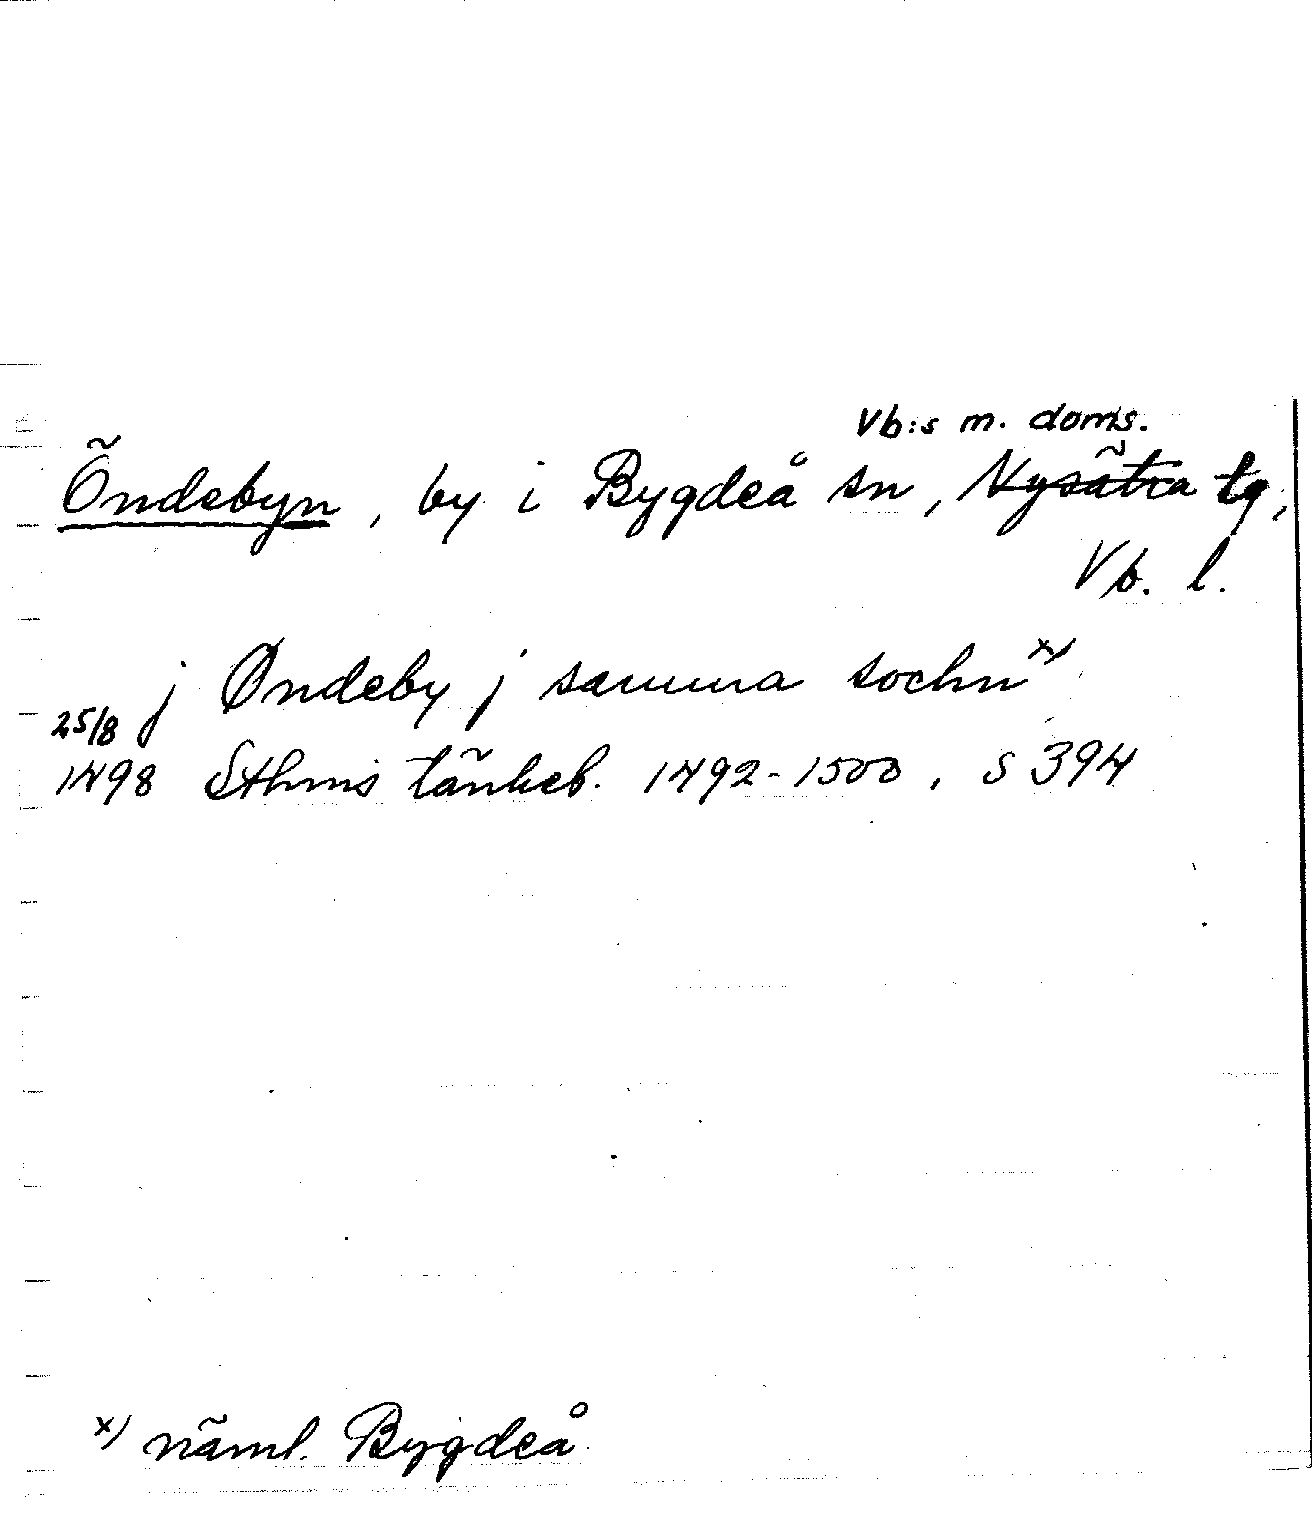 Vb:s m. doms.
Öndebyn, by i Bygdeå sn, Nysätra tg,
Vb. l.
j Øndeby j samma sochn x)
25/8
1498 Sthms tänkeb. 1492-1500, s 394
x) näml. Bygdeå